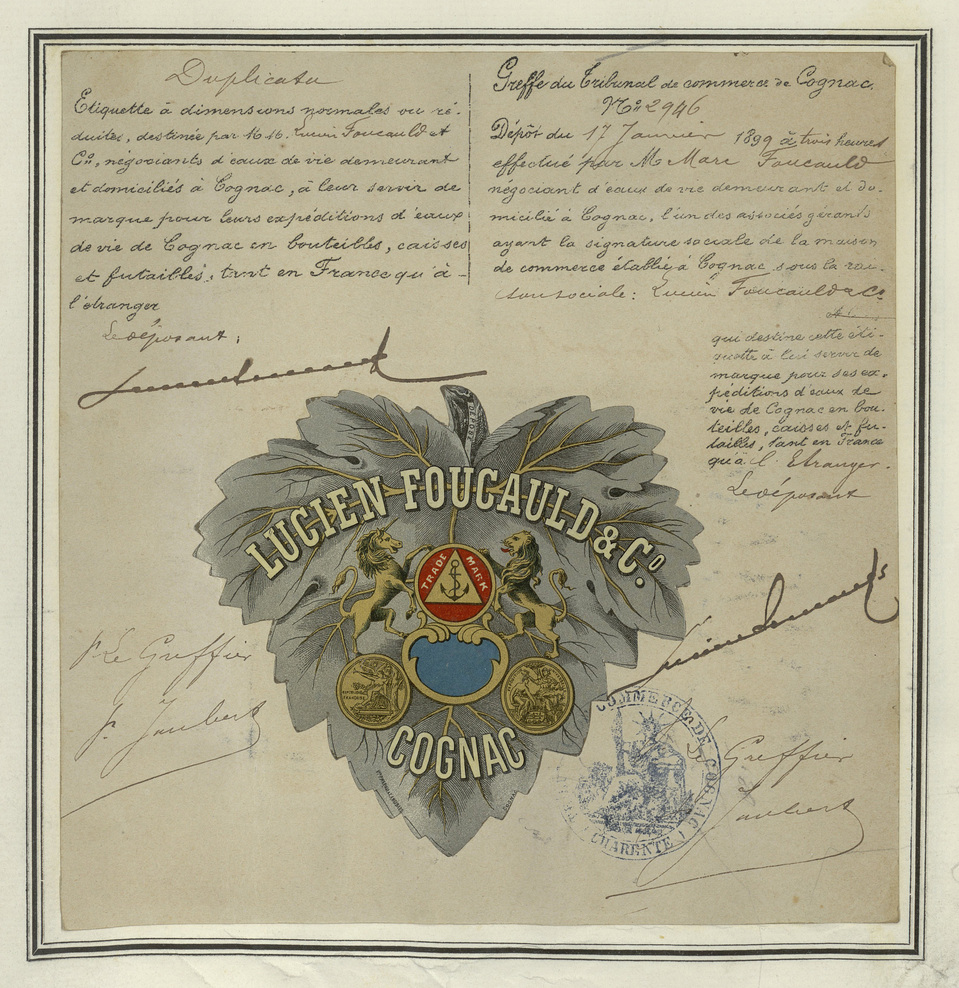 Duplicata
Etiquette à dimensions normales ou ré-
duites, destinée par MM. Lucien Foucauld et
Cie, négociants d'eaux de vie demeurant
et domiciliés à Cognac, à leur servir de
marque pour leurs expéditions d'eaux
de vie de Cognac en bouteilles, caisses
et futailles, tant en France qu'à -
l'étranger
Le déposant,
Greffe du Tribunal de commerce de Cognac.
No 2946
Dépôt du 17 Janvier 1899 à trois heures
effectué par M Marc Foucauld
négociant d'eaux de vie demeurant et do-
micilié à Cognac, l'un des associés gérants
ayant la signature sociale de la maison
de commerce établie à Cognac sous la rai-
son sociale: Lucien Foucauld & Co
qui destine cette éti-
quette à leur servir de
marque pour ses ex-
péditions d'eaux de
vie de Cognac en bou-
teilles, caisses et fu-
tailles, tant en France
qu'à l'Etranger.
Le déposant
DÉPOSÉ
LUCIEN FOUCAULD & Co.
TRADE MARK
COGNAC
Pr Le Greffier
P. Joubert
Le Greffier
Joubert
COMMERCE DE COGNAC
CHARENTE